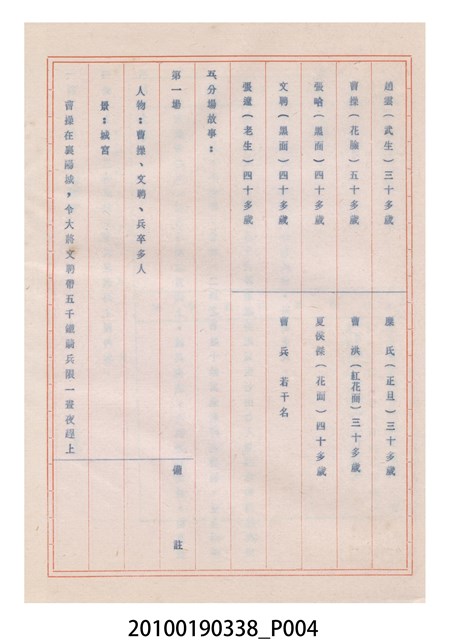 趙雲（武生）三十多歲
糜氏（正旦）三十多歲
曹操（花臉）五十多歲
曹洪（紅花面）三十多歲
張哈（黑面）四十多歲
夏侯傑（花面）四十多歲
文聘（黑面）四十多歲
曹兵 若干名
張遼（老生）四十多歲
五、分場故事：
第一場
備註
人物：曹操、文聘、兵卒多人
景：城宮
曹操在襄陽城，令大將文聘帶五千鐵騎兵限一晝夜趕上
20100190338_P004